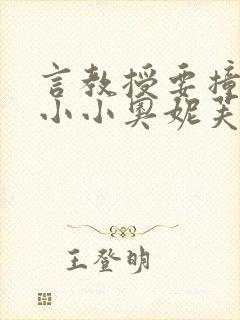 言教授要撞
小小奥妮芙
王登明